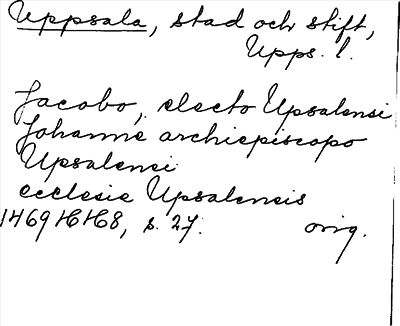 Uppsala, stad och stift,
Upps. l.
Jacobo, electo Upsalensi
Johanne archiepiscopo
Upsalensi
ecclesie Upsalensis
1469 16/8, s. 27. orig.